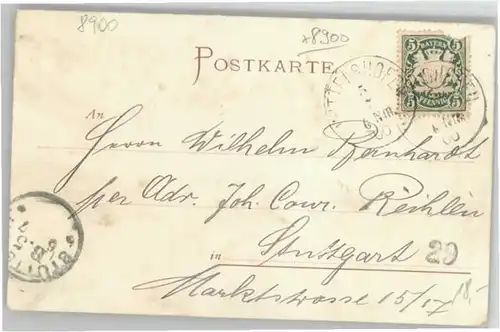 8900
+8900
POSTKARTE
BAYERN
5 5
PFENNIG
An
Herrn Wilhelm Bernhardt
per Adr. Joh. Conr. Reihlen
in Stuttgart 29
Marktstrasse 15/17
18,-